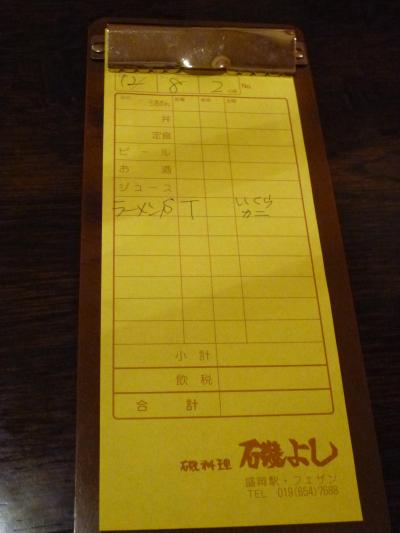 12 8 2 No.
丼
定食
ビール
お酒
ジュース
ラーメン T いくら
カニ
小計
飲税
合計
磯料理 磯よし
盛岡駅・フェザン
TEL 019(654)7688